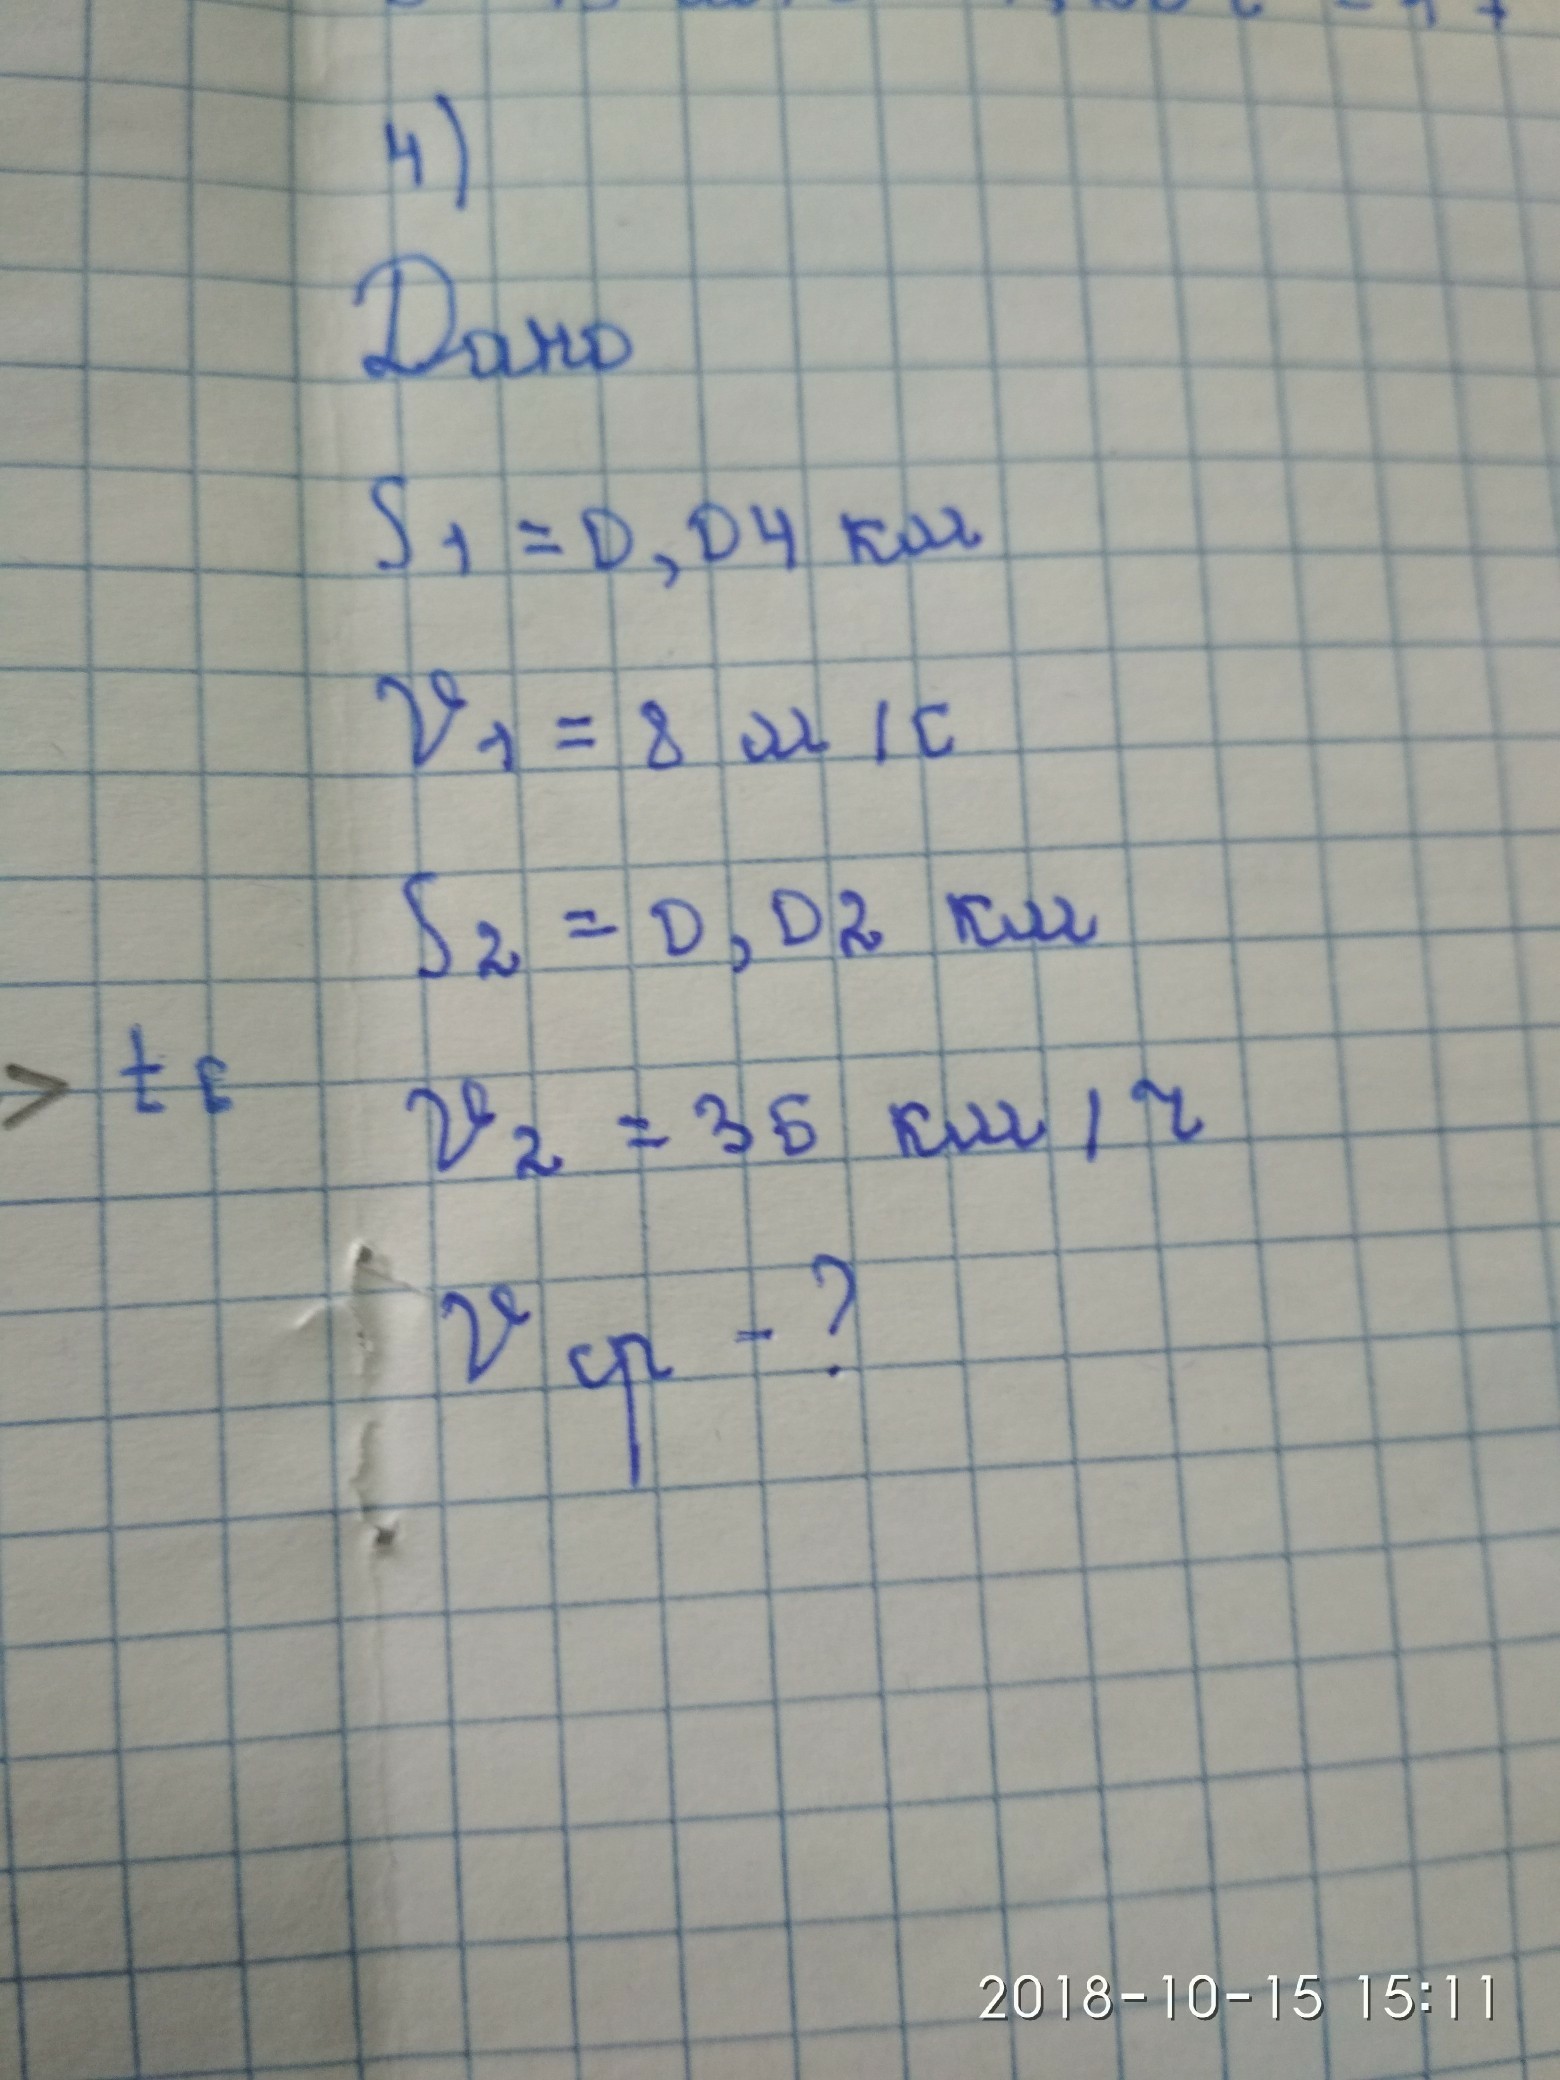 4)
Дано
S1 = 0,04 км
V1 = 8 м/с
S2 = 0,02 км
> t
V2 = 36 км/ч
Vср - ?
2018-10-15 15:11